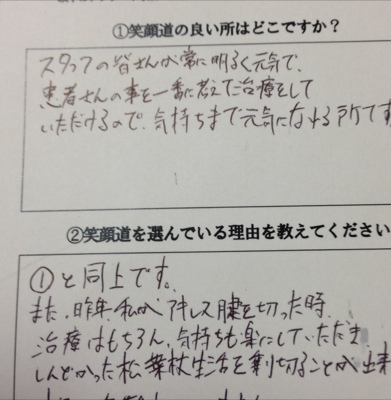 ①笑顔道の良い所はどこですか？
スタッフの皆さんが常に明るく元気で、
患者さんの事を一番に考えて治療をして
いただけるので、気持ちまで元気になれる所です
②笑顔道を選んでいる理由を教えてください
①と同上です。
また、昨年、私がアキレス腱を切った時
治療はもちろん、気持ちも楽にしていただき
しんどかった松葉杖生活を乗り切ることが出来